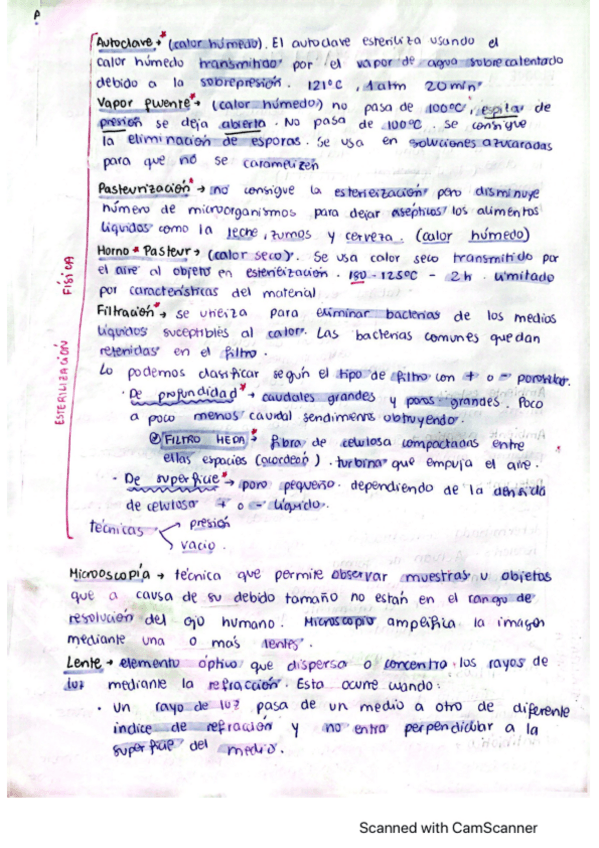 P
Autoclave → (calor húmedo). El autoclave esteriliza usando el
calor húmedo transmitido por el vapor de agua sobrecalentado
debido a la sobrepresión. 121ºC, 1 atm 20 min
Vapor fluente → (calor húmedo) no pasa de 100ºC, espita de
presión se deja abierta. No pasa de 100ºC. se consigue
la eliminación de esporas. Se usa en soluciones azucaradas
para que no se caramelizen
Pasteurización → no consigue la esterilización pero disminuye
número de microorganismos para dejar asépticos los alimentos
líquidos como la leche, zumos y cerveza. (calor húmedo)
Horno Pasteur → (calor seco). Se usa calor seco transmitido por
el aire al objeto en esterilización. 180-125ºC - 2h. Limitado
por características del material
Filtración → se utiliza para eliminar bacterias de los medios
líquidos suceptibles al calor. Las bacterias comunes quedan
retenidas en el filtro.
Lo podemos clasificar según el tipo de filtro con + o - porosidad.
· De profundidad → caudales grandes y poros grandes. Poco
a poco menos caudal sendimento obtruyendo.
FILTRO HEPA → fibra de celulosa compactadas entre
ellas espacios (acordeón). turbina que empuja el aire.
· De superficie → poro pequeño. dependiendo de la densida
de celulosa + o - líquido.
técnicas → presión
→ vacío.
ESTERILIZACIÓN FÍSICA
Microoscopía → técnica que permite observar muestras u objetos
que a causa de su debido tamaño no están en el rango de
resolución del ojo humano. Microscopio amplifia la imagen
mediante una o más lentes.
Lente → elemento óptivo que dispersa o concentra los rayos de
luz mediante la refracción. Esta ocurre cuando:
· un rayo de luz pasa de un medio a otro de diferente
índice de refración y no entra perpendicular a la
superficie del medio.
Scanned with CamScanner